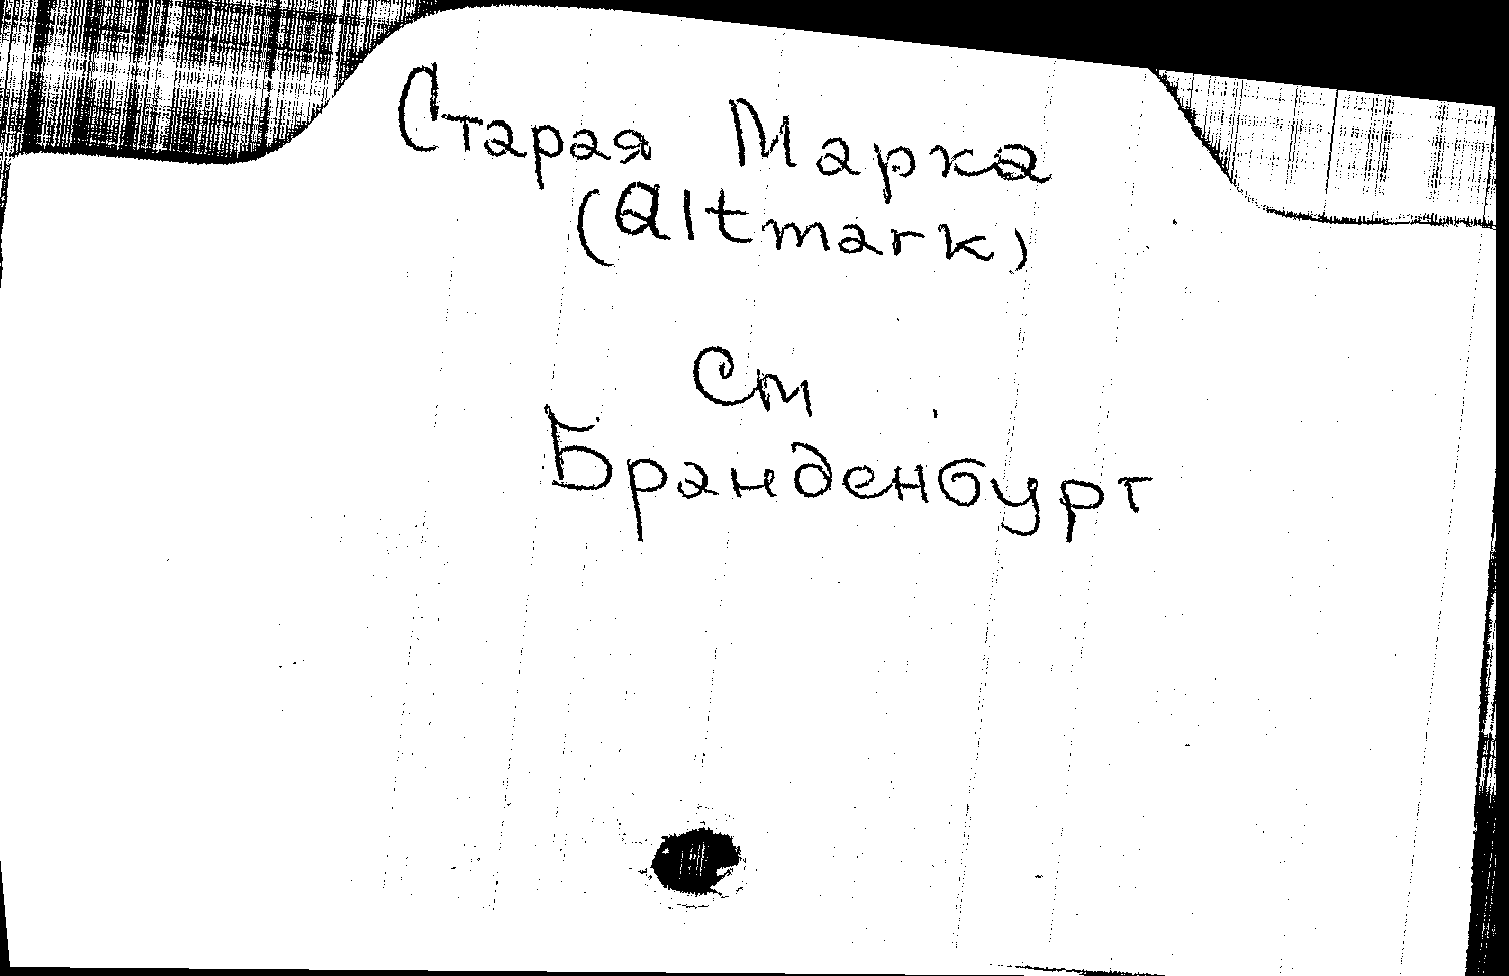 Старая Марка
(Altmark)
См
Бранденбург